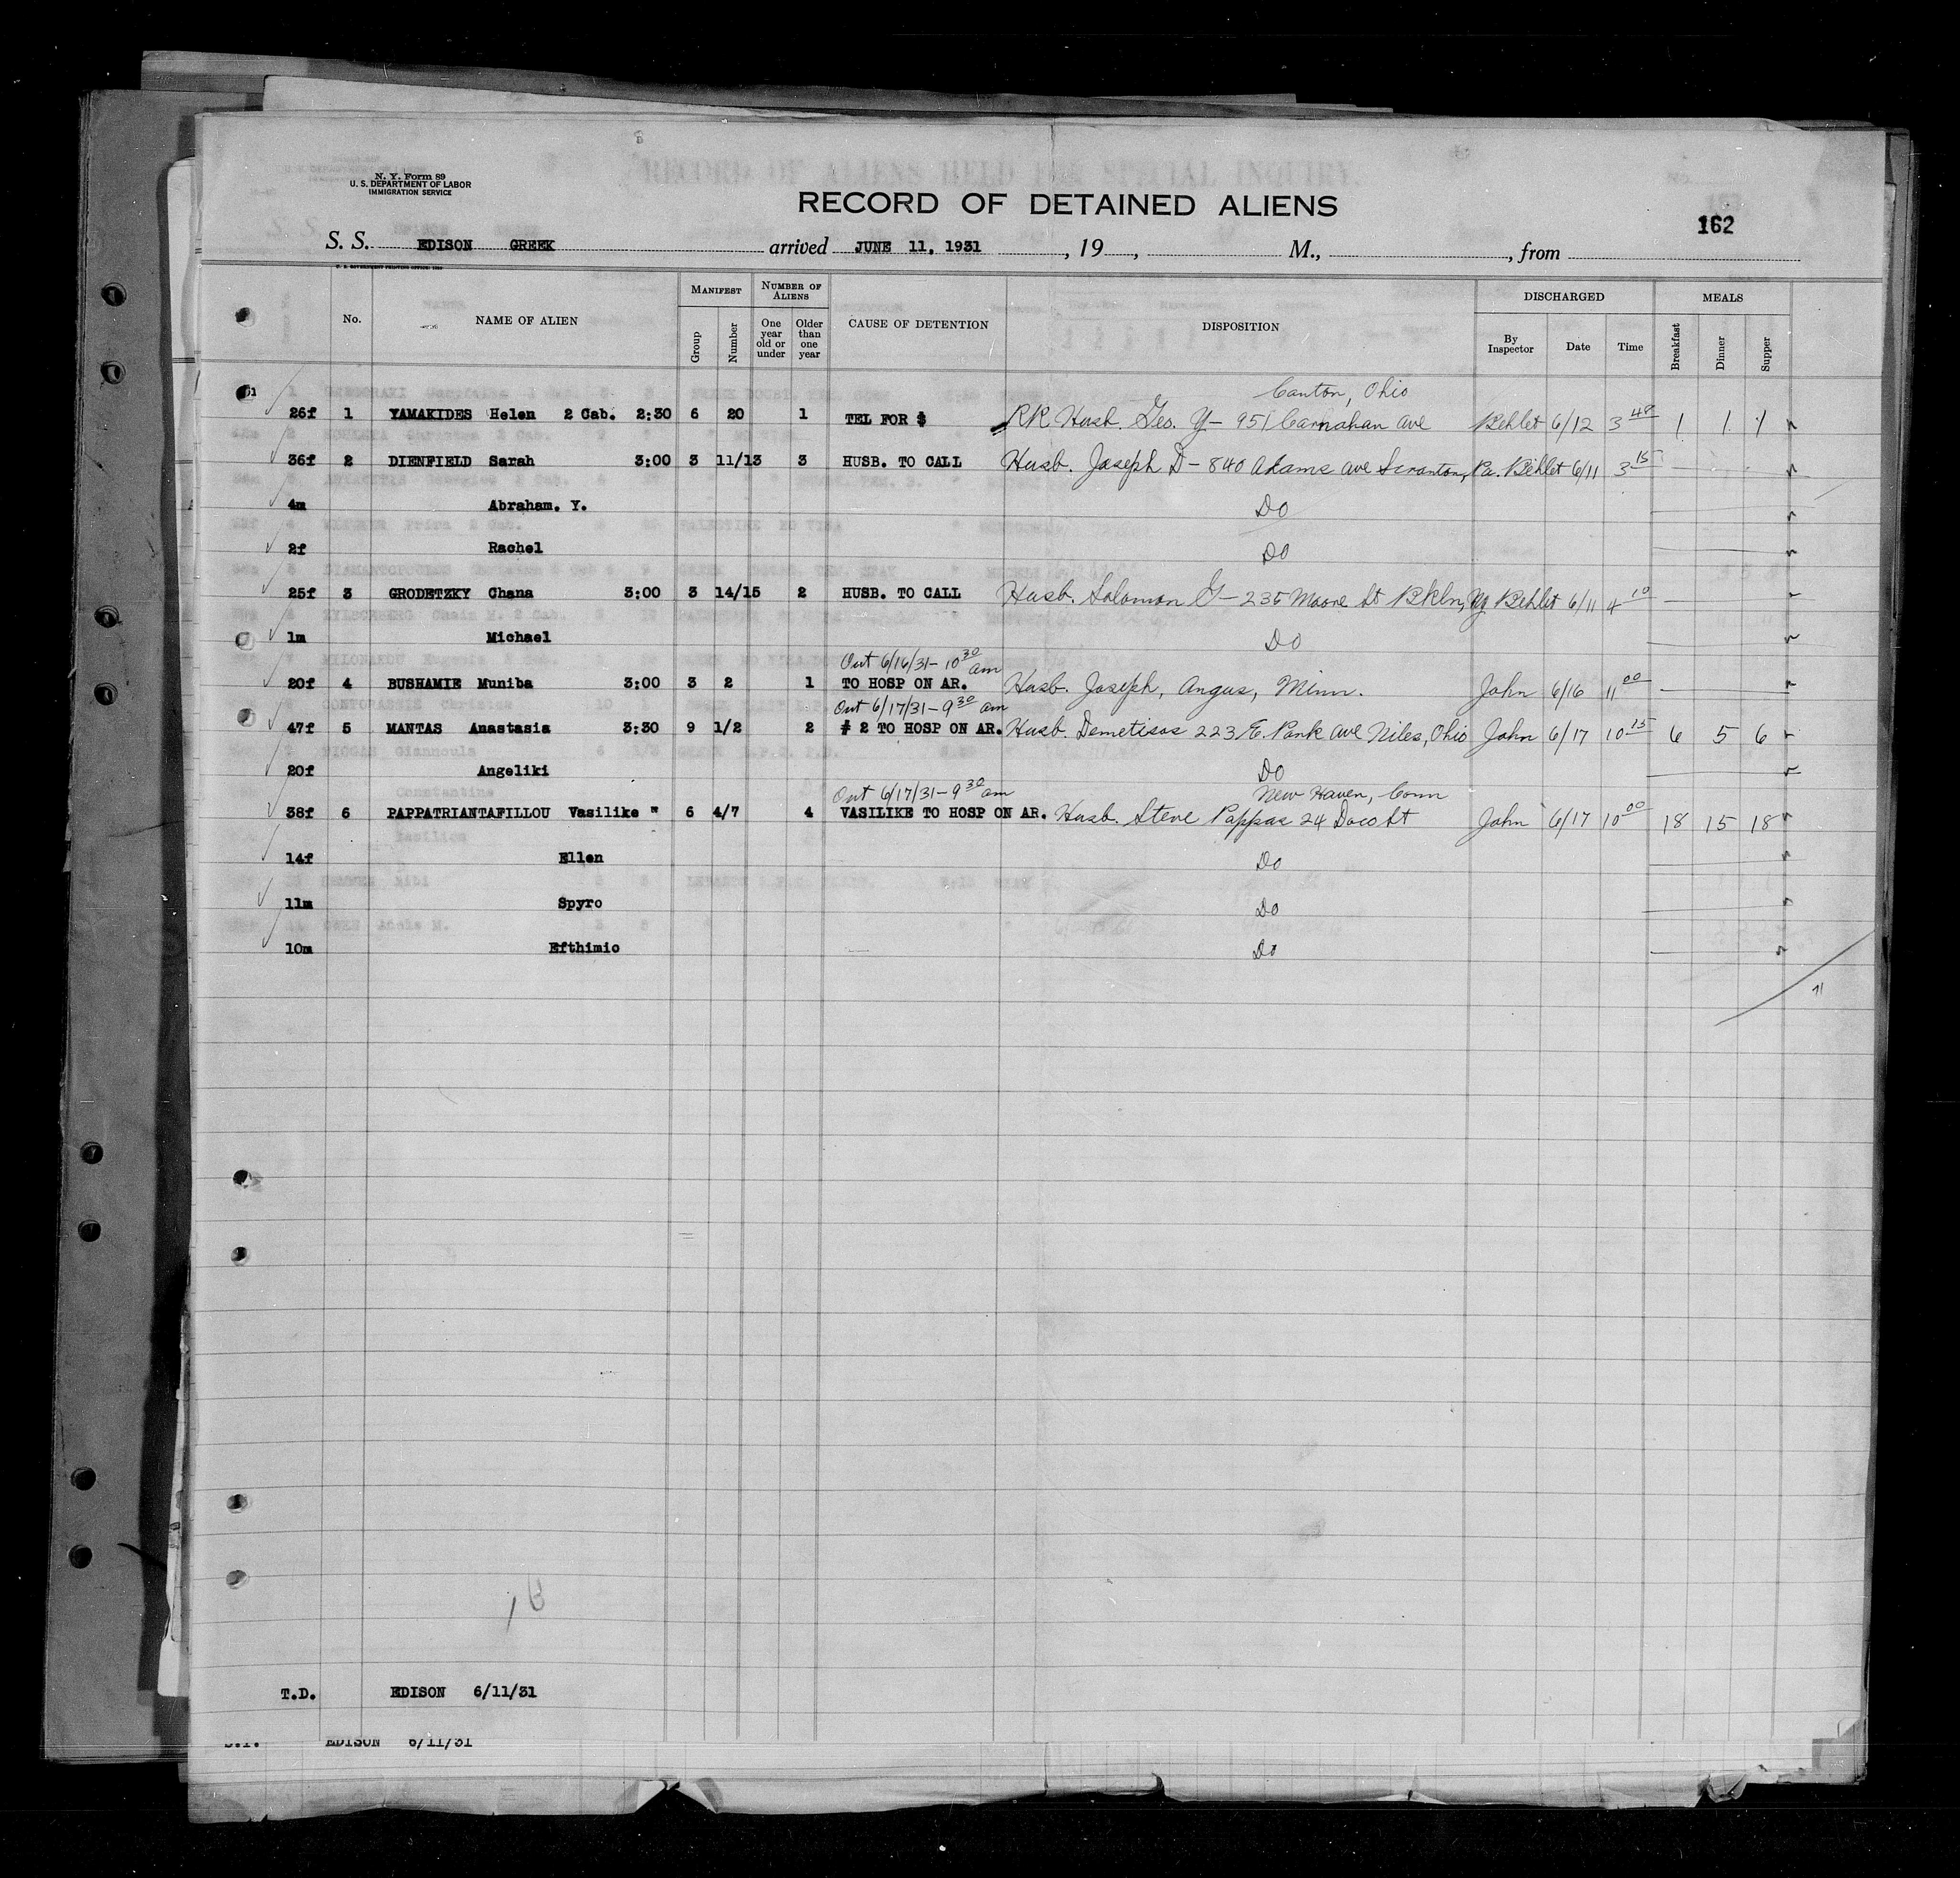 N. Y. Form 89
U. S. DEPARTMENT OF LABOR
IMMIGRATION SERVICE
RECORD OF DETAINED ALIENS
162
S. S. EDISON GREEK arrived JUNE 11, 1931, 19, M., from
U. S. GOVERNMENT PRINTING OFFICE
No. NAME OF ALIEN MANIFEST Group Number NUMBER OF ALIENS One year old or under Older than one year CAUSE OF DETENTION DISPOSITION DISCHARGED By Inspector Date Time MEALS Breakfast Dinner Supper
Canton, Ohio
26f 1 YAMAKIDES Helen 2 Cab. 2:30 6 20 1 TEL FOR $ RR Husb. Geo. Y- 951 Carnahan ave Behlet 6/12 3 48 1 1 1
36f 2 DIENFIELD Sarah 3:00 3 11/13 3 HUSB. TO CALL Husb. Joseph D- 840 Adams ave Scranton, Pa. Behlet 6/11 3 15
4m Abraham. Y. Do
2f Rachel Do
25f 3 GRODETZKY Chana 3:00 3 14/15 2 HUSB. TO CALL Husb. Solomon G- 235 Moore St Bkln, NY Behlet 6/11 4 10
1m Michael Do
Out 6/16/31- 10 30 am
20f 4 BUSHAMIE Muniba 3:00 3 2 1 TO HOSP ON AR. Husb. Joseph, Angus, Minn. John 6/16 11 00
Out 6/17/31- 9 30 am
47f 5 MANTAS Anastasia 3:30 9 1/2 2 # 2 TO HOSP ON AR. Husb. Demetisos 223 E. Park ave Niles, Ohio John 6/17 10 15 6 5 6
20f Angeliki Do
Out 6/17/31- 9 30 am New Haven, Conn
38f 6 PAPPATRIANTAFILLOU Vasilike " 6 4/7 4 VASILIKE TO HOSP ON AR. Husb. Steve Pappas 24 St John 6/17 10 00 18 15 18
14f Ellen Do
11m Spyro Do
10m Efthimio Do
T.D. EDISON 6/11/31
EDISON 6/11/31